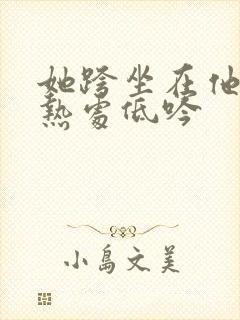 她跨坐在他
熱處低吟
小島文美